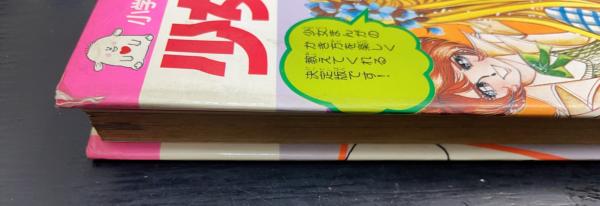 小学
少女
少女まんがの
かき方を楽しく
教えてくれる
決定版です!